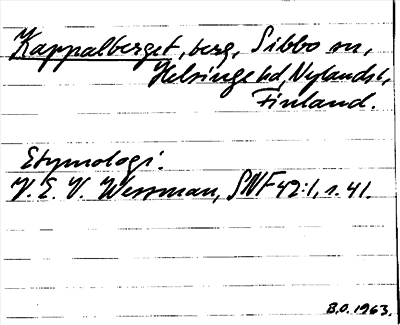 Kappalberget, berg, Sibbo sn,
Helsinge hd, Nylands l,
Finland.
Etymologi.
V. E. V. Wessman, SNF 42:1, s. 41.
B.O. 1963.